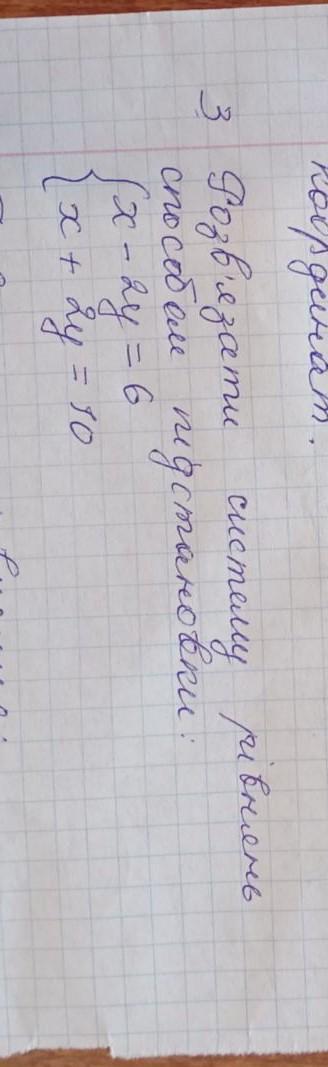 координат.
3 Розв'язати систему рівнянь
способом підстановки:
{ x - 2y = 6
{ x + 2y = 10